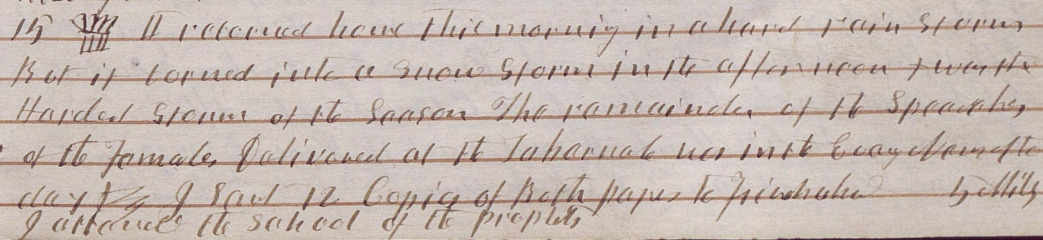 15 I retorned home this morning in a hard rain storm
But it torned into a snow storm in the afternoon & was the
Hardest storm of the Season The remainder of the Speeches
of the Females Delivered at the Tabernacle was in the Evening News of to
day I sent 12 Copies of Both papers to 5 Miles
I attended the School of the prophets